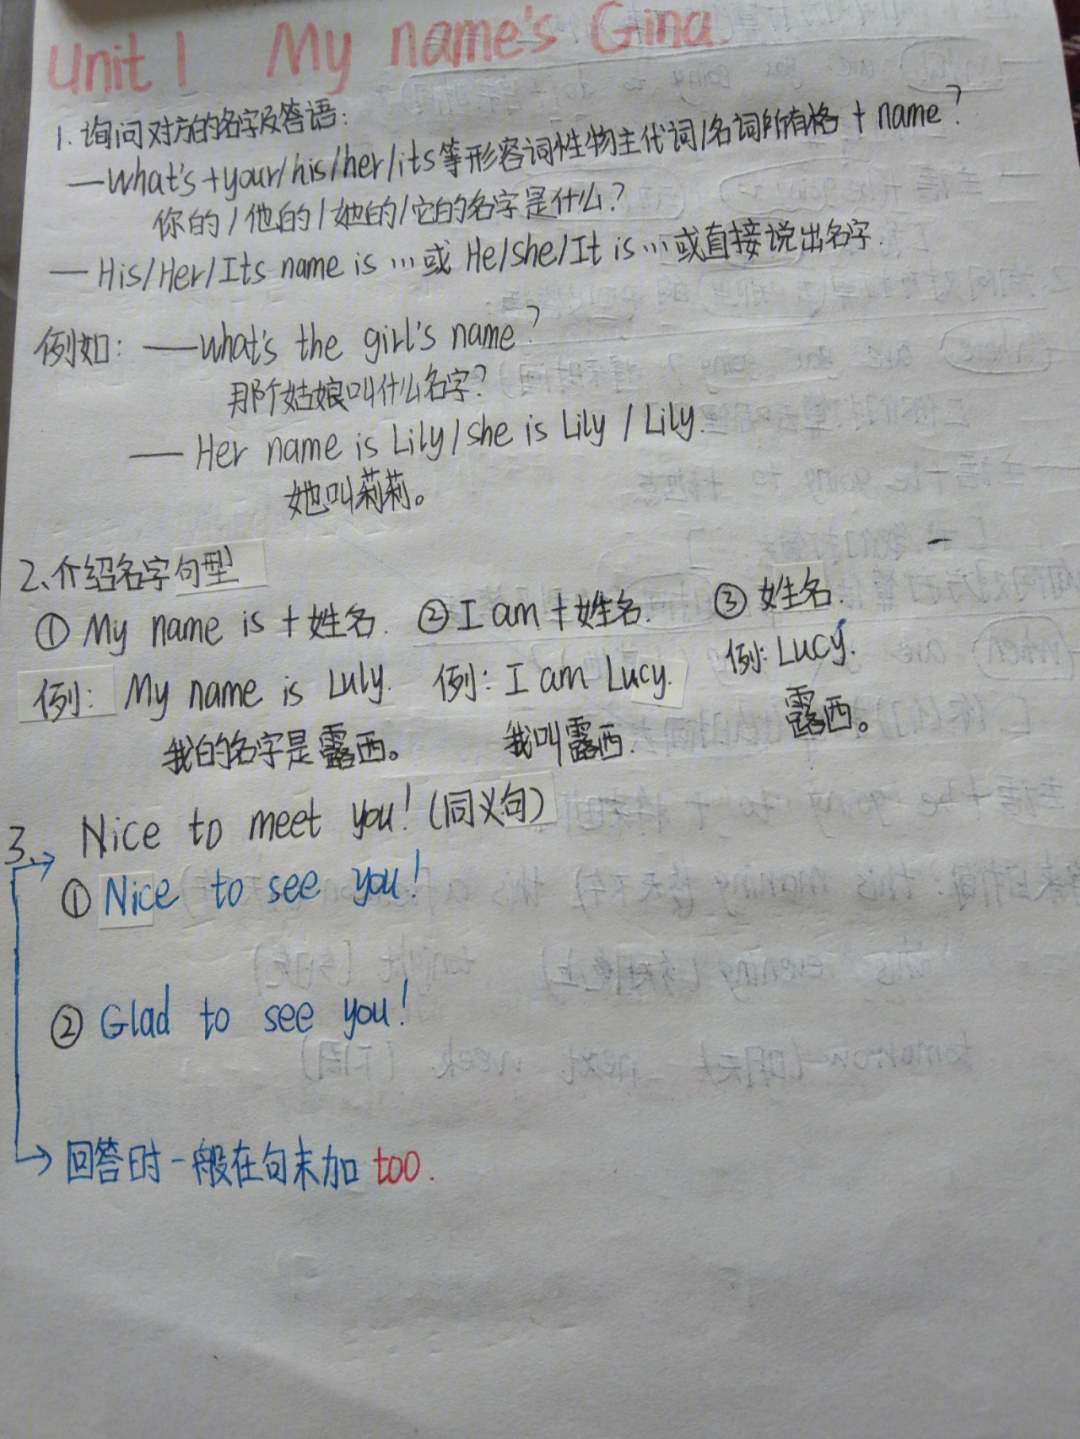 Unit 1 My name's Gina
1. 询问对方的名字及答语:
—What's+your/his/her/its等形容词性物主代词/名词所有格 + name?
你的/他的/她的/它的名字是什么?
—His/Her/Its name is …或 He/She/It is …或直接说出名字.
例如: —What's the girl's name?
那个姑娘叫什么名字?
— Her name is Lily/she is Lily / Lily.
她叫莉莉。
2、介绍名字句型
① My name is + 姓名. ② I am + 姓名. ③ 姓名.
例: My name is Luly. 例: I am Lucy. 例: Lucy.
我的名字是露西。 我叫露西. 露西。
3、 Nice to meet you! (同义句)
① Nice to see you!
② Glad to see you!
回答时一般在句末加 too.